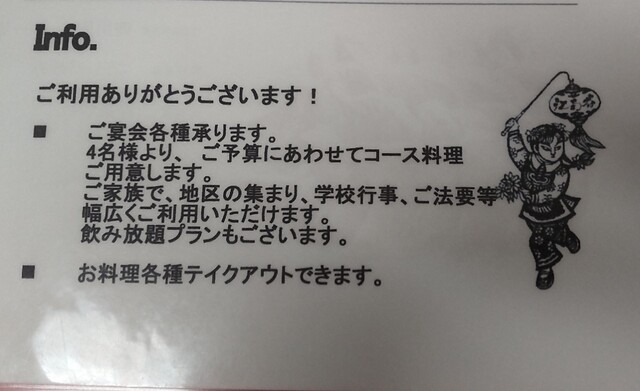 Info.
ご利用ありがとうございます！
■ ご宴会各種承ります。
4名様より、ご予算にあわせてコース料理
ご用意します。
ご家族で、地区の集まり、学校行事、ご法要等
幅広くご利用いただけます。
飲み放題プランもございます。
■ お料理各種テイクアウトできます。